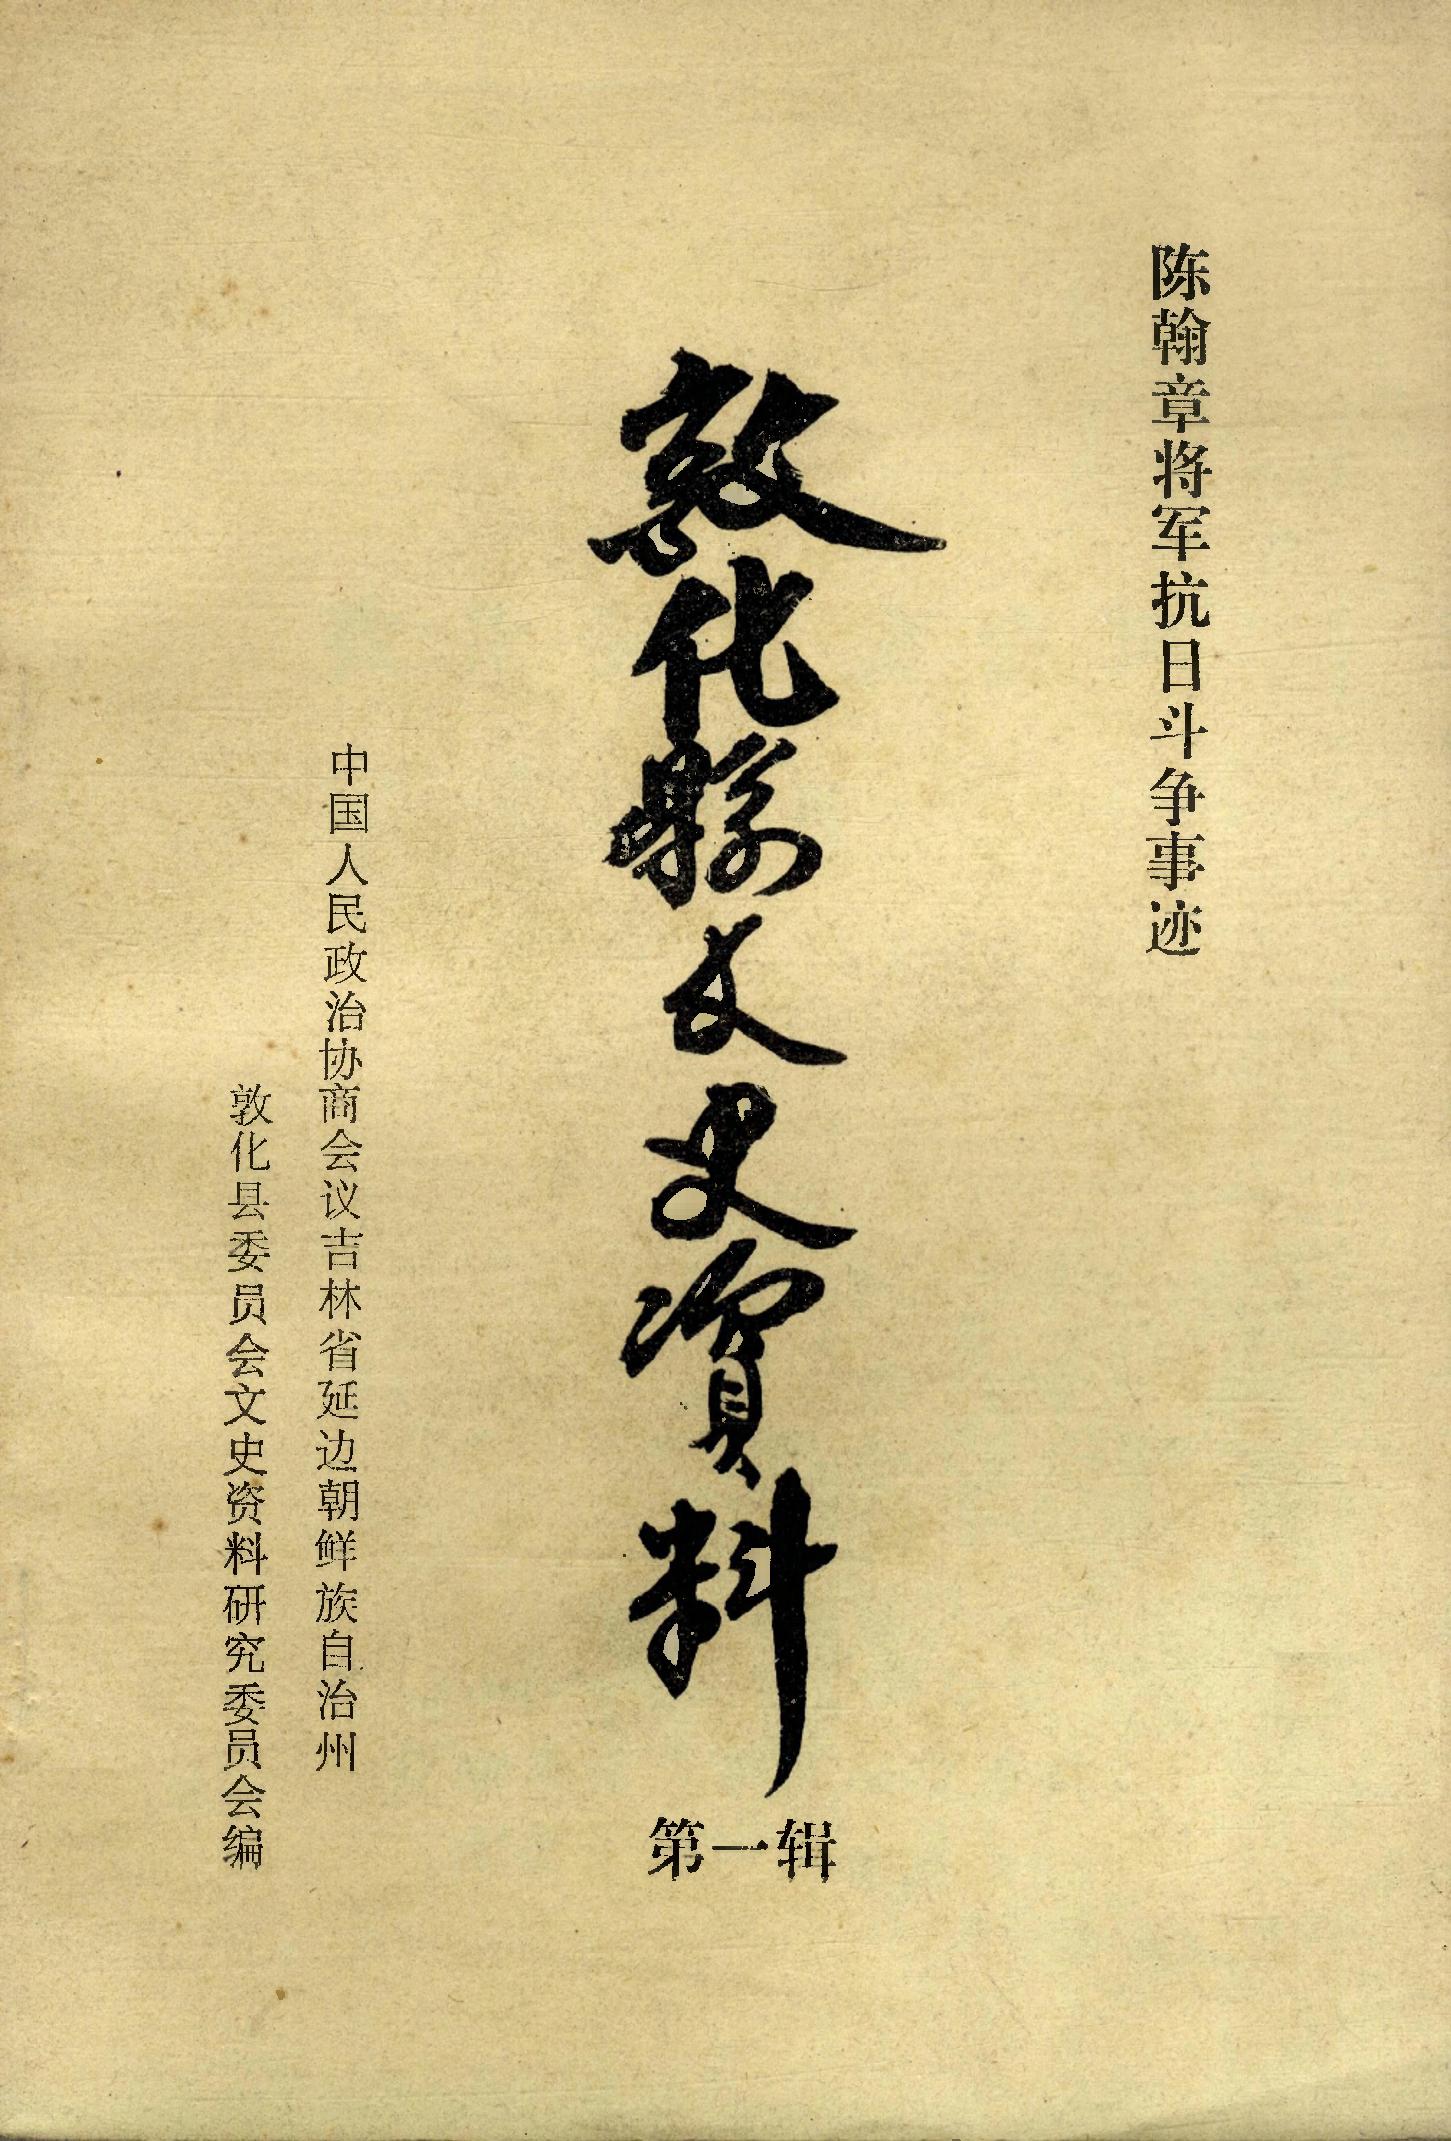 陈翰章将军抗日斗争事迹
敦化縣文史資料
第一辑
中国人民政治协商会议吉林省延边朝鲜族自治州
敦化县委员会文史资料研究委员会编